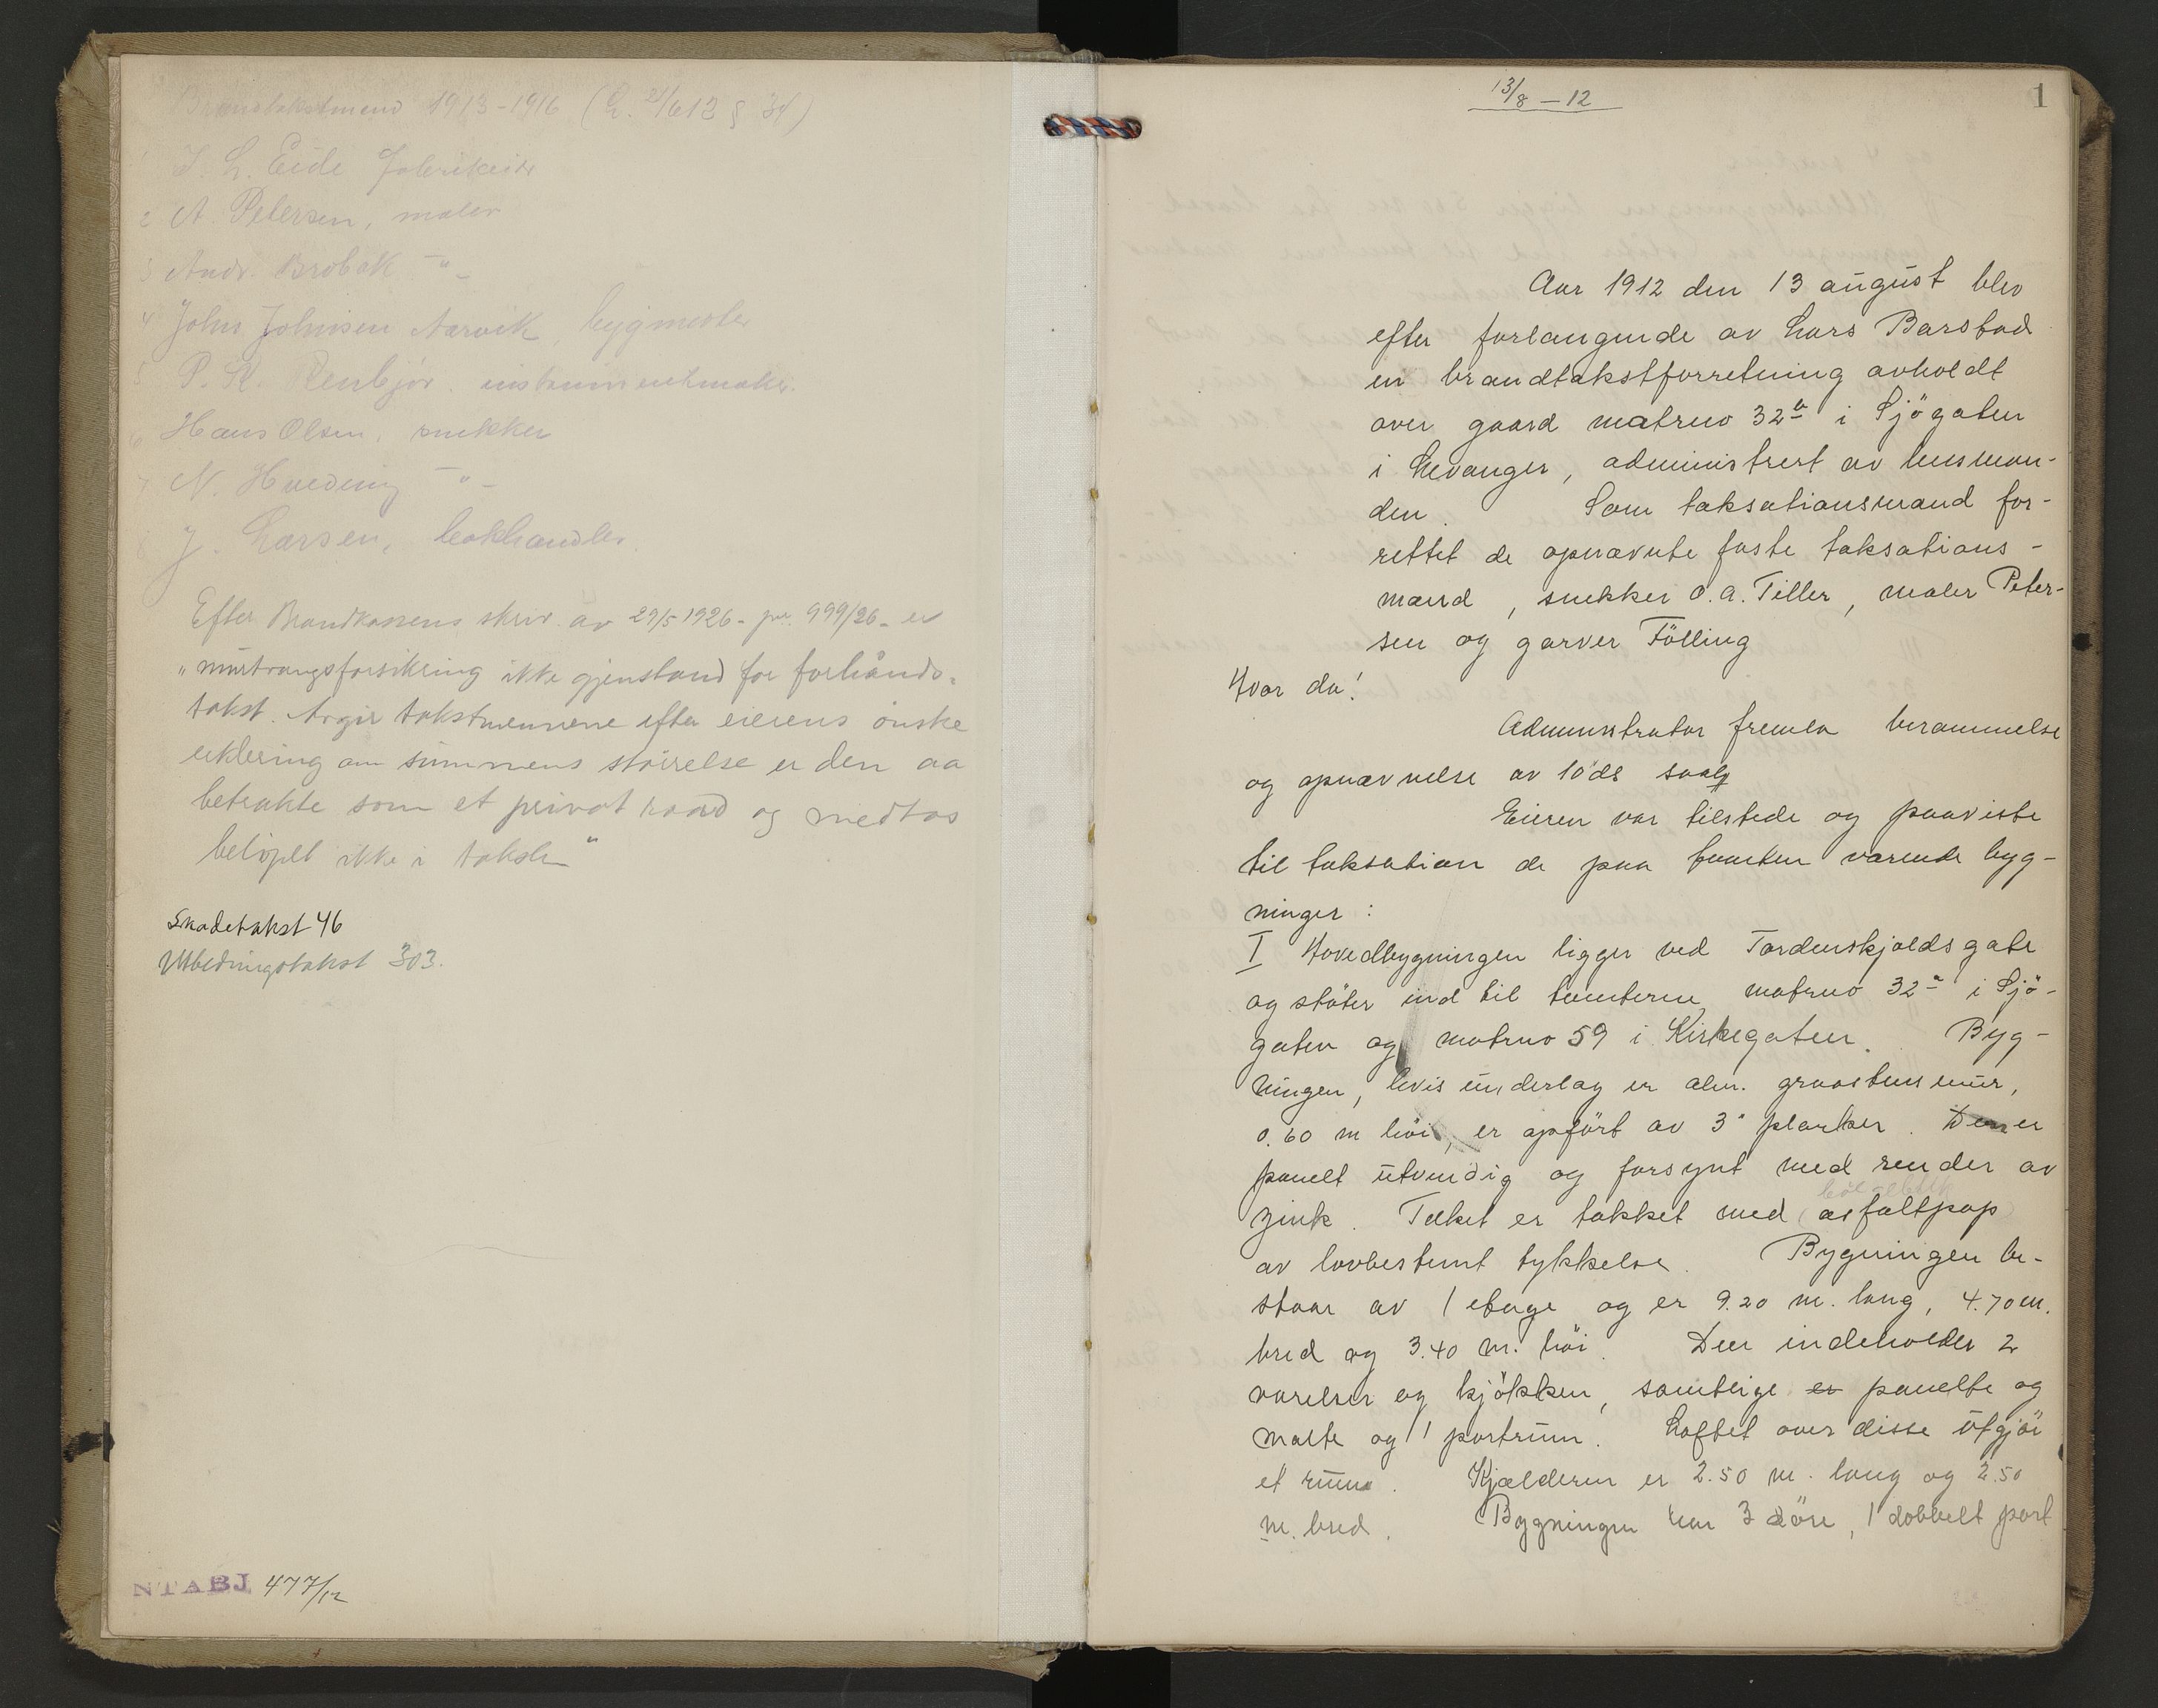 Brandtakstmænd 1913-1916 (L. 21/6 12 § 34)
1 J. L. Eide Fabrikeier
2 A. Petersen, maler
3 Andr. Brobak —"—
4 John Johnsen Aarvik, bygmester
5 P. K. Renbjör. instrumentmaker.
6 Hans Olsen, snekker
7 N. Hveding —"—
8 J. Larsen, bokhandler.
Efter Brandkassens skriv. av 29/5 1926 - jnr. 999/26 - er
"murtvangsforsikring ikke gjenstand for forhånds-
takst. Avgir takstmennene efter eierens ønske
erklering om summens størrelse er den aa
betrakte som et privat raad og medtas
beløpet ikke i taksten"
Skadetakst 46
Utbedringstakst 303.
NTABJ 477/12
13/8 — 12
1
Aar 1912 den 13 august blev
efter forlangende av Lars Barstad
en brandtakstforretning avholdt
over gaard matrno 32b i Sjögaten
i Levanger, administrert av lensman-
den. Som taksationsmænd for-
rettet de opnævnte faste taksations-
mænd, snekker O. A. Tiller, maler Peter-
sen og garver Fölling
Hvor da!
Administrator fremla berammelse
og opnævnelse av 10de
Eieren var tilstede og paaviste
til taksation de paa tomten værende byg-
ninger:
I Hovedbygningen ligger ved Tordenskjoldsgate
og stöter ind til tomterne matrno 32a i Sjö-
gaten og matrno 59 i Kirkegaten. Byg-
ningen, hvis underlag er alm. graastensmur,
0.60 m höi, er opfört av 3" planker. Den er
panelt utvendig og forsynt med render av
bölgeblik
zink. Taket er tækket med (asfaltpap)
av lovbestemt tykkelse. Bygningen be-
staar av 1 etage og er 9.20 m. lang, 4.70 m.
bred og 3.40 m. höi. Den indeholder 2
værelser og kjökken, samtlige er panelte og
malte og 1 portrum. Loftet over disse utgjör
et rum. Kjælderen er 2.50 m. lang og 2.50
m. bred. Bygningen har 3 döre, 1 dobbelt port